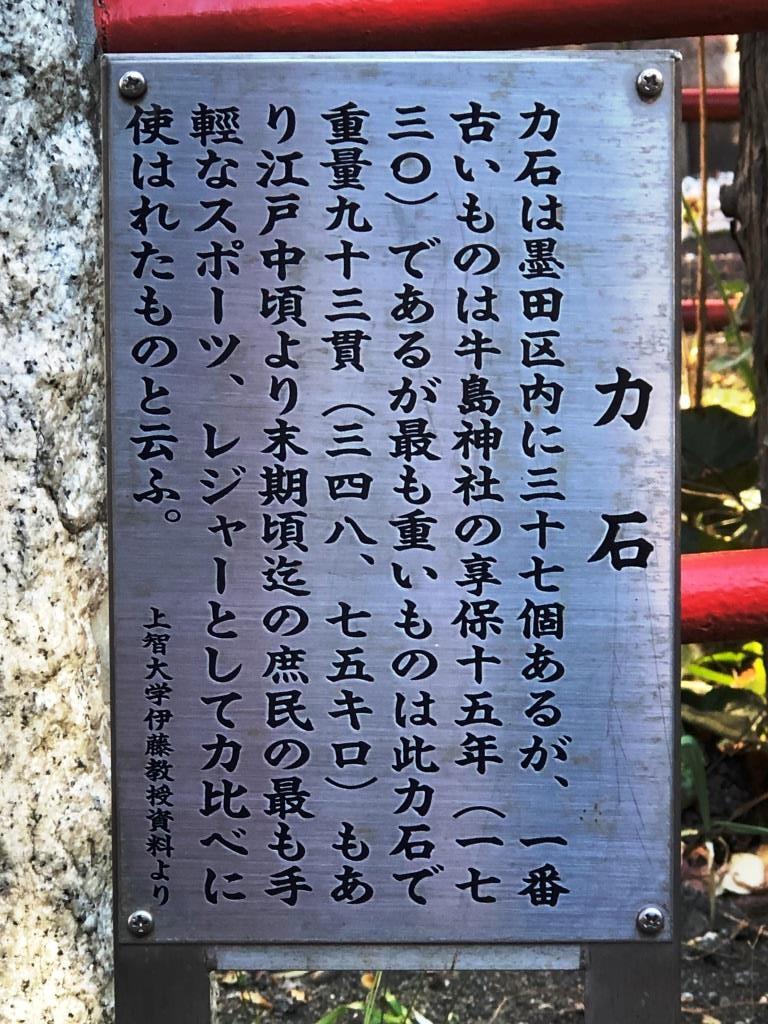 力石
力石は墨田区内に三十七個あるが、一番
古いものは牛島神社の享保十五年（一七
三〇）であるが最も重いものは此力石で
重量九十三貫（三四八、七五キロ）もあ
り江戸中頃より末期頃迄の庶民の最も手
輕なスポーツ、レジャーとして力比べに
使はれたものと云ふ。
上智大学伊藤教授資料より